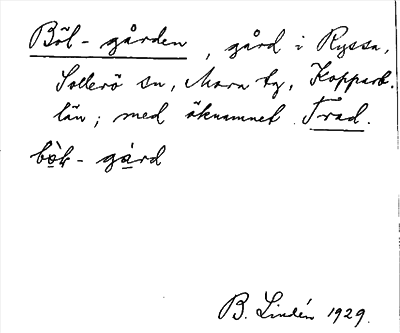 Böl-gården, gård i Ryssa,
Sollerö sn, Mora tg, Kopparb.
län; med öknamnet Trad.
bòk-gård
B. Lindén 1929.